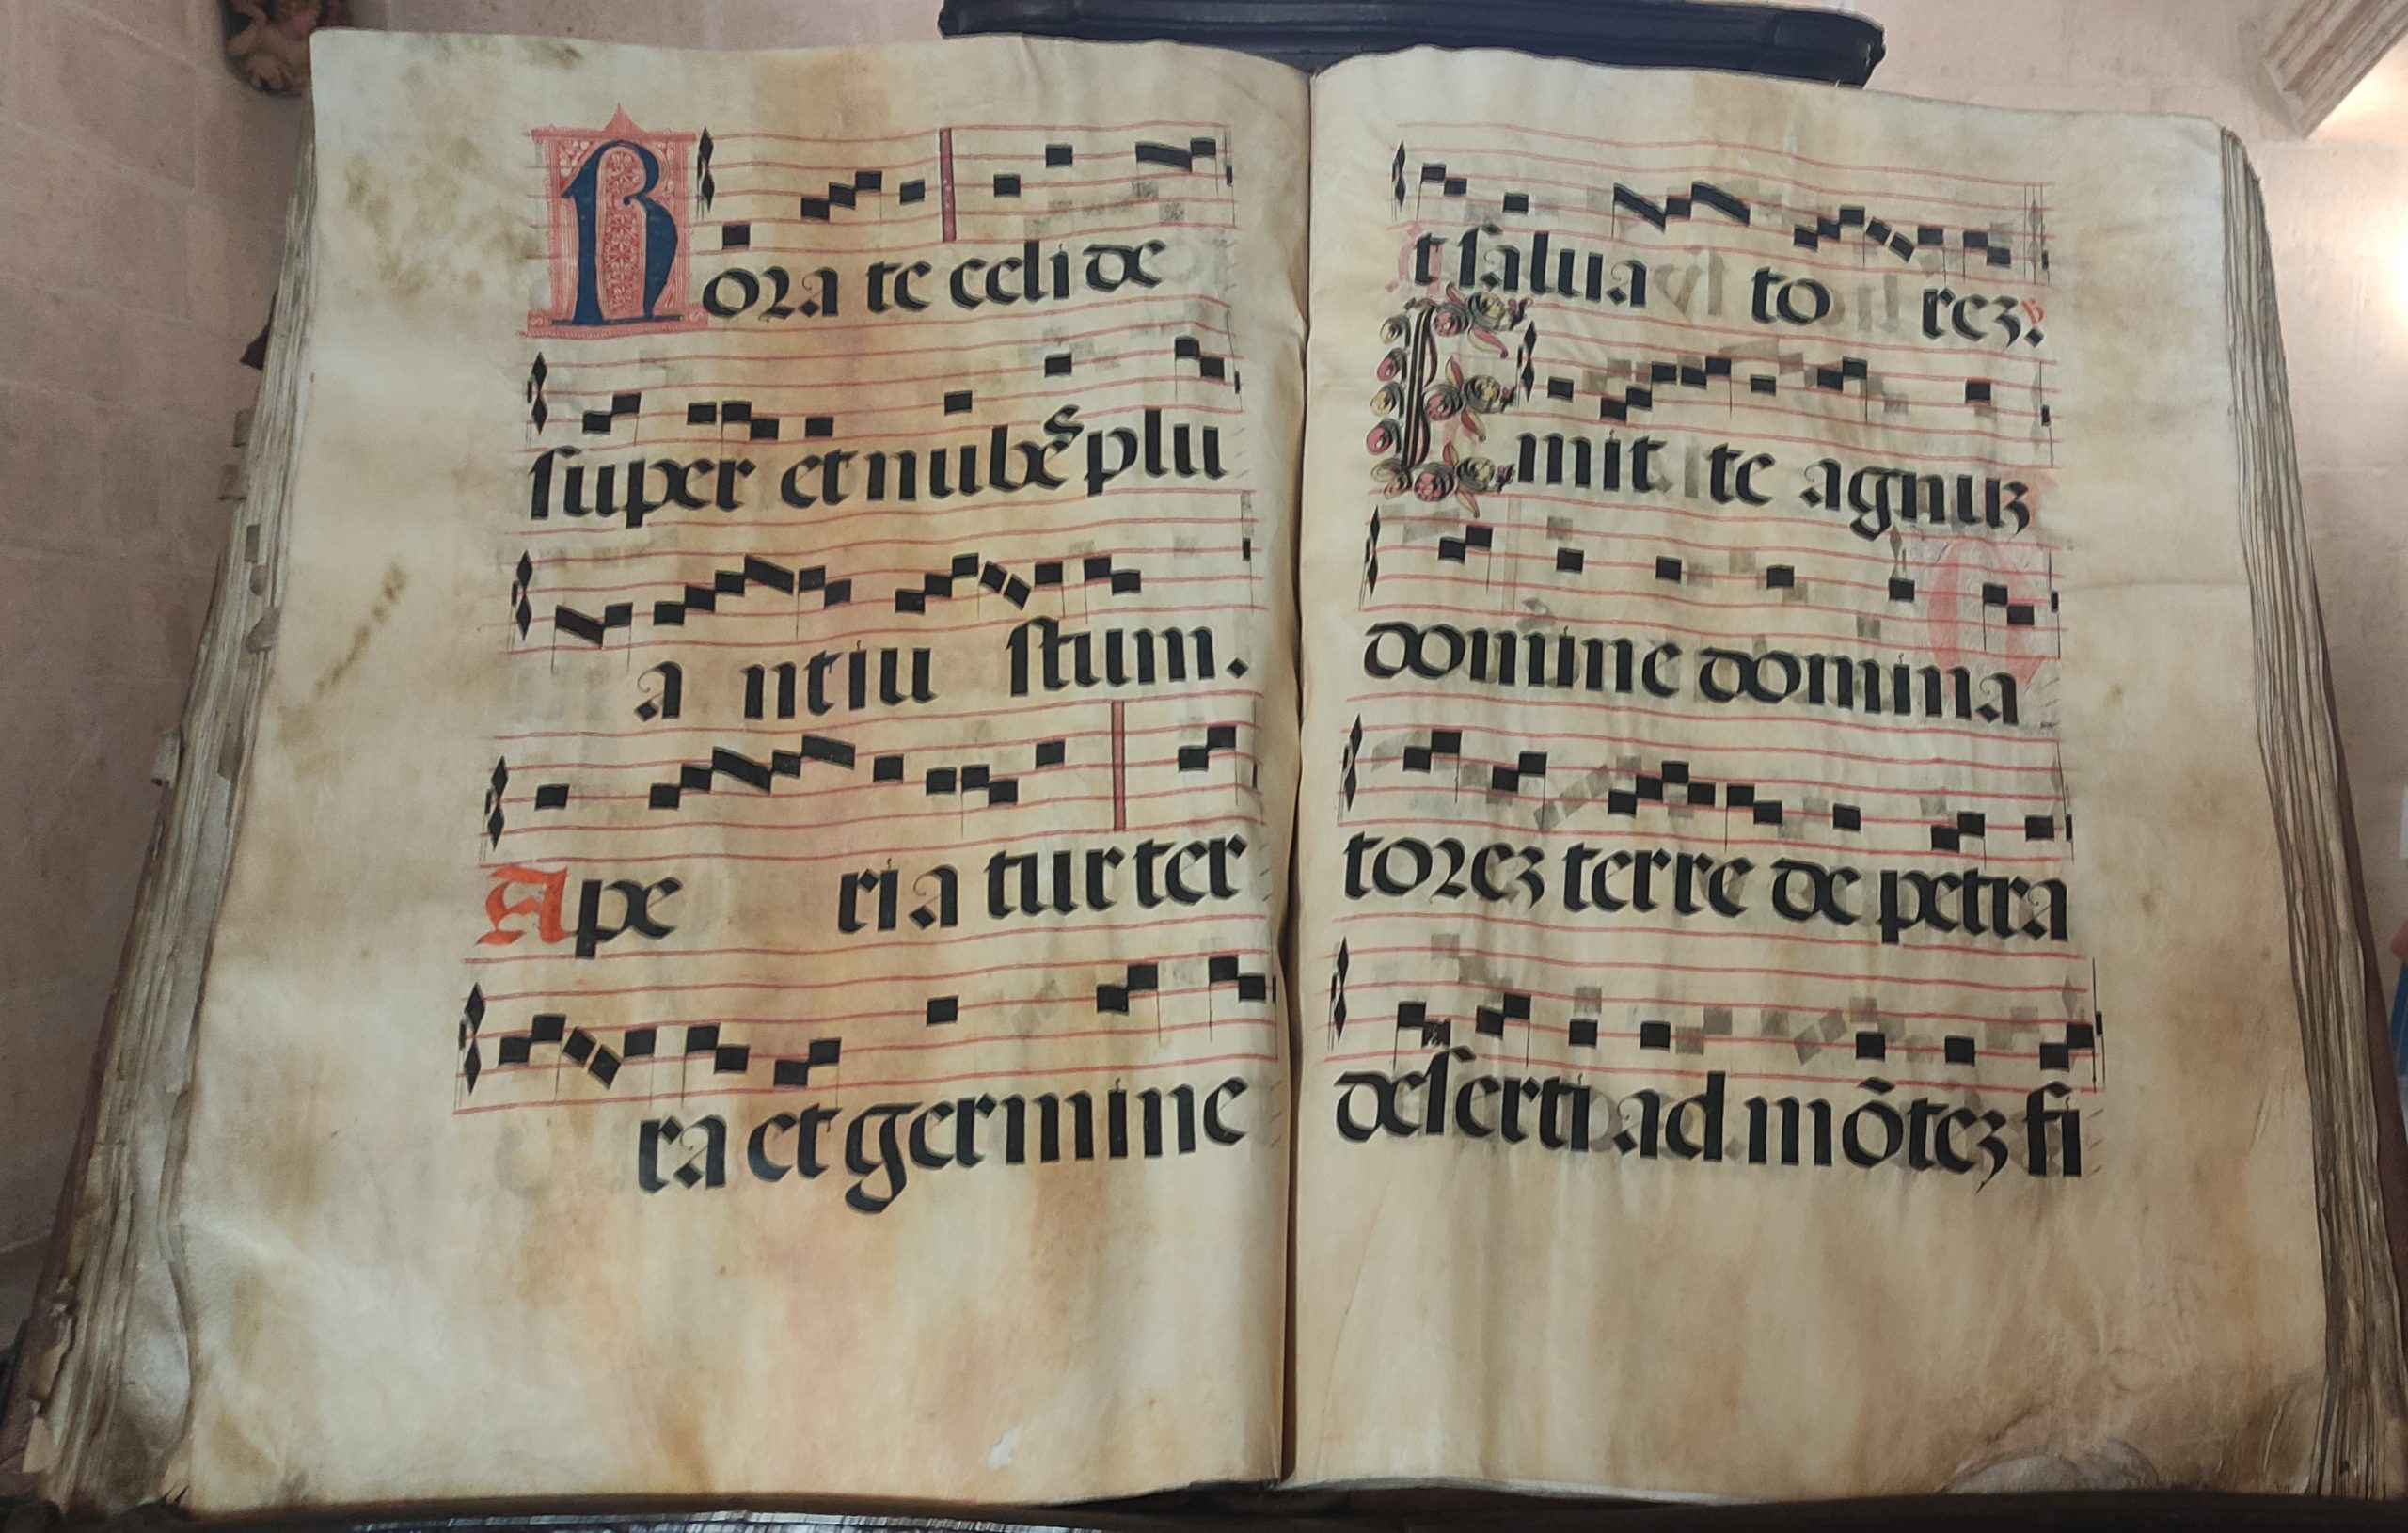 Rorate celi de
super et nubes plu
a ntiu stum.
Ape ria tur ter
ra et germine
t salua to rez.
Emit te agnuz
domine domina
torez terre de petra
deserti ad mõtez fi